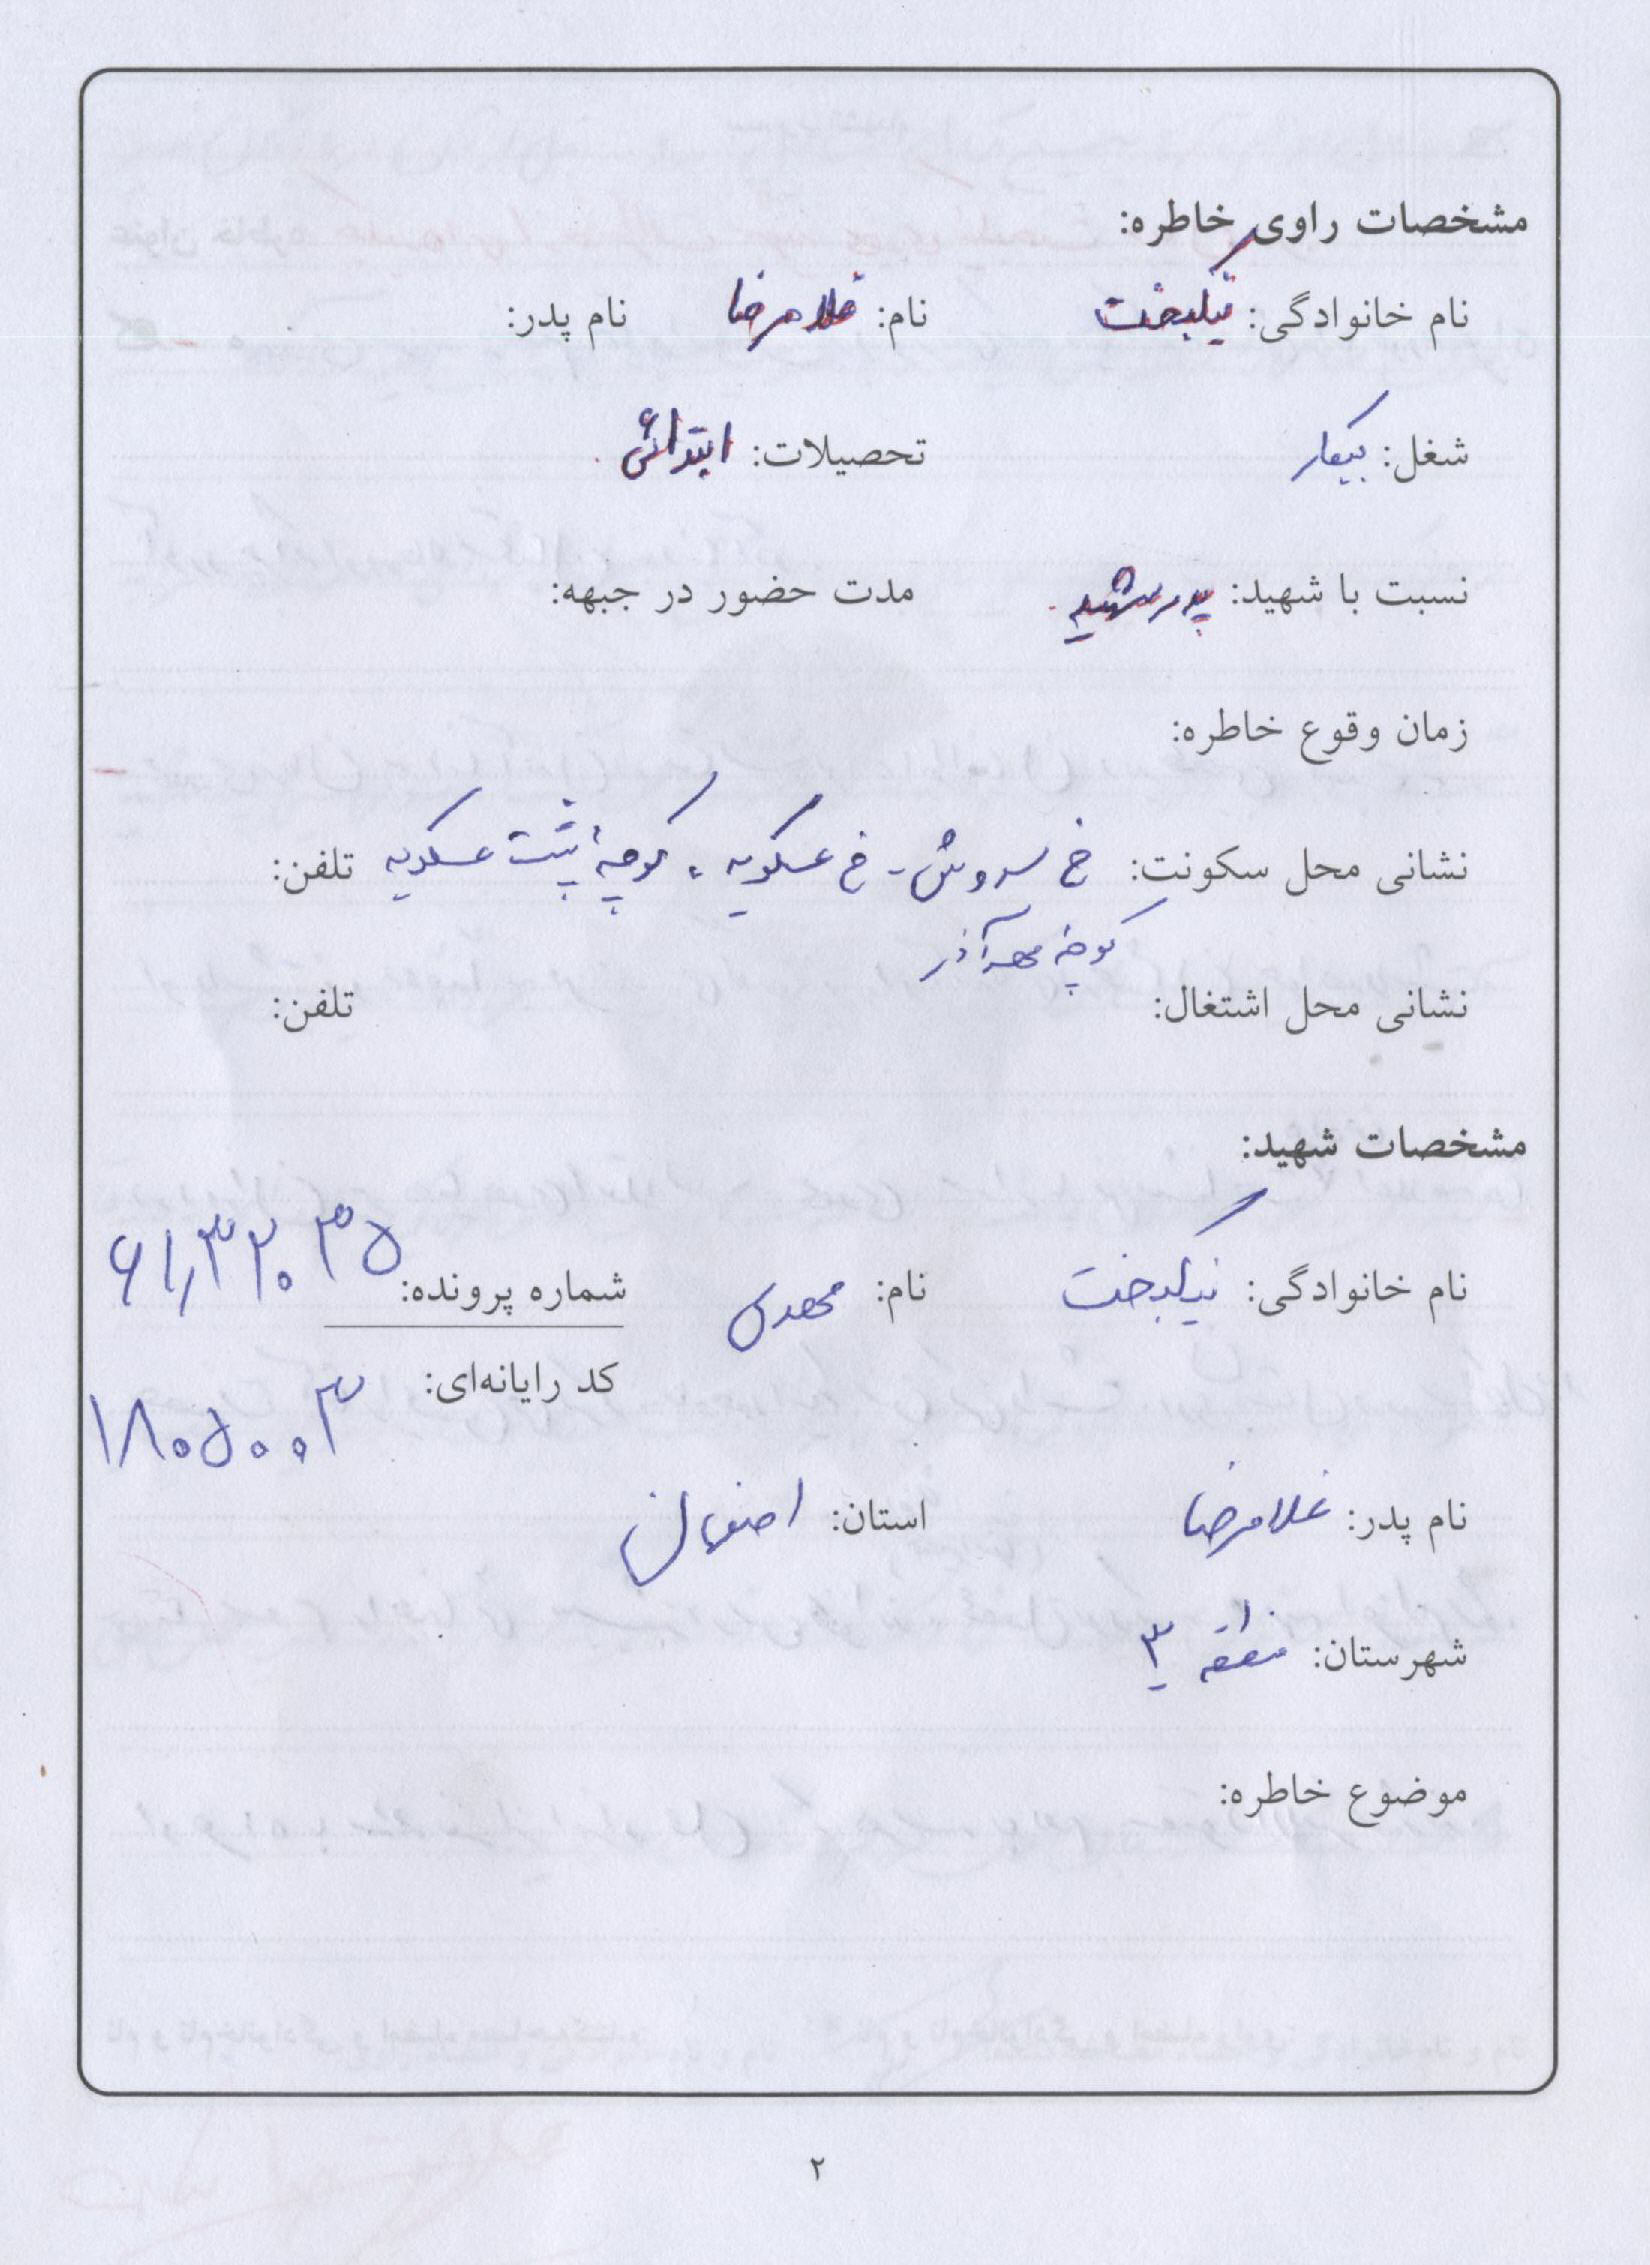 مشخصات راوی خاطره:
نام خانوادگی: نیکبخت نام: غلامرضا نام پدر:
شغل: بیکار تحصیلات: ابتدائی
نسبت با شهید: پدر شهید مدت حضور در جبهه:
زمان وقوع خاطره:
نشانی محل سکونت: خ سروش - خ عسکریه، کوچهٔ پشت عسکریه تلفن:
کوچه مهرآذر
نشانی محل اشتغال: تلفن:
مشخصات شهید:
نام خانوادگی: نیکبخت نام: مهدی شماره پرونده: ۶۱٫۳۲۰۳۵
کد رایانه‌ای: ۱۸۰۵۰۰۳
نام پدر: غلامرضا استان: اصفهان
شهرستان: منطقه ۳
موضوع خاطره:
۲